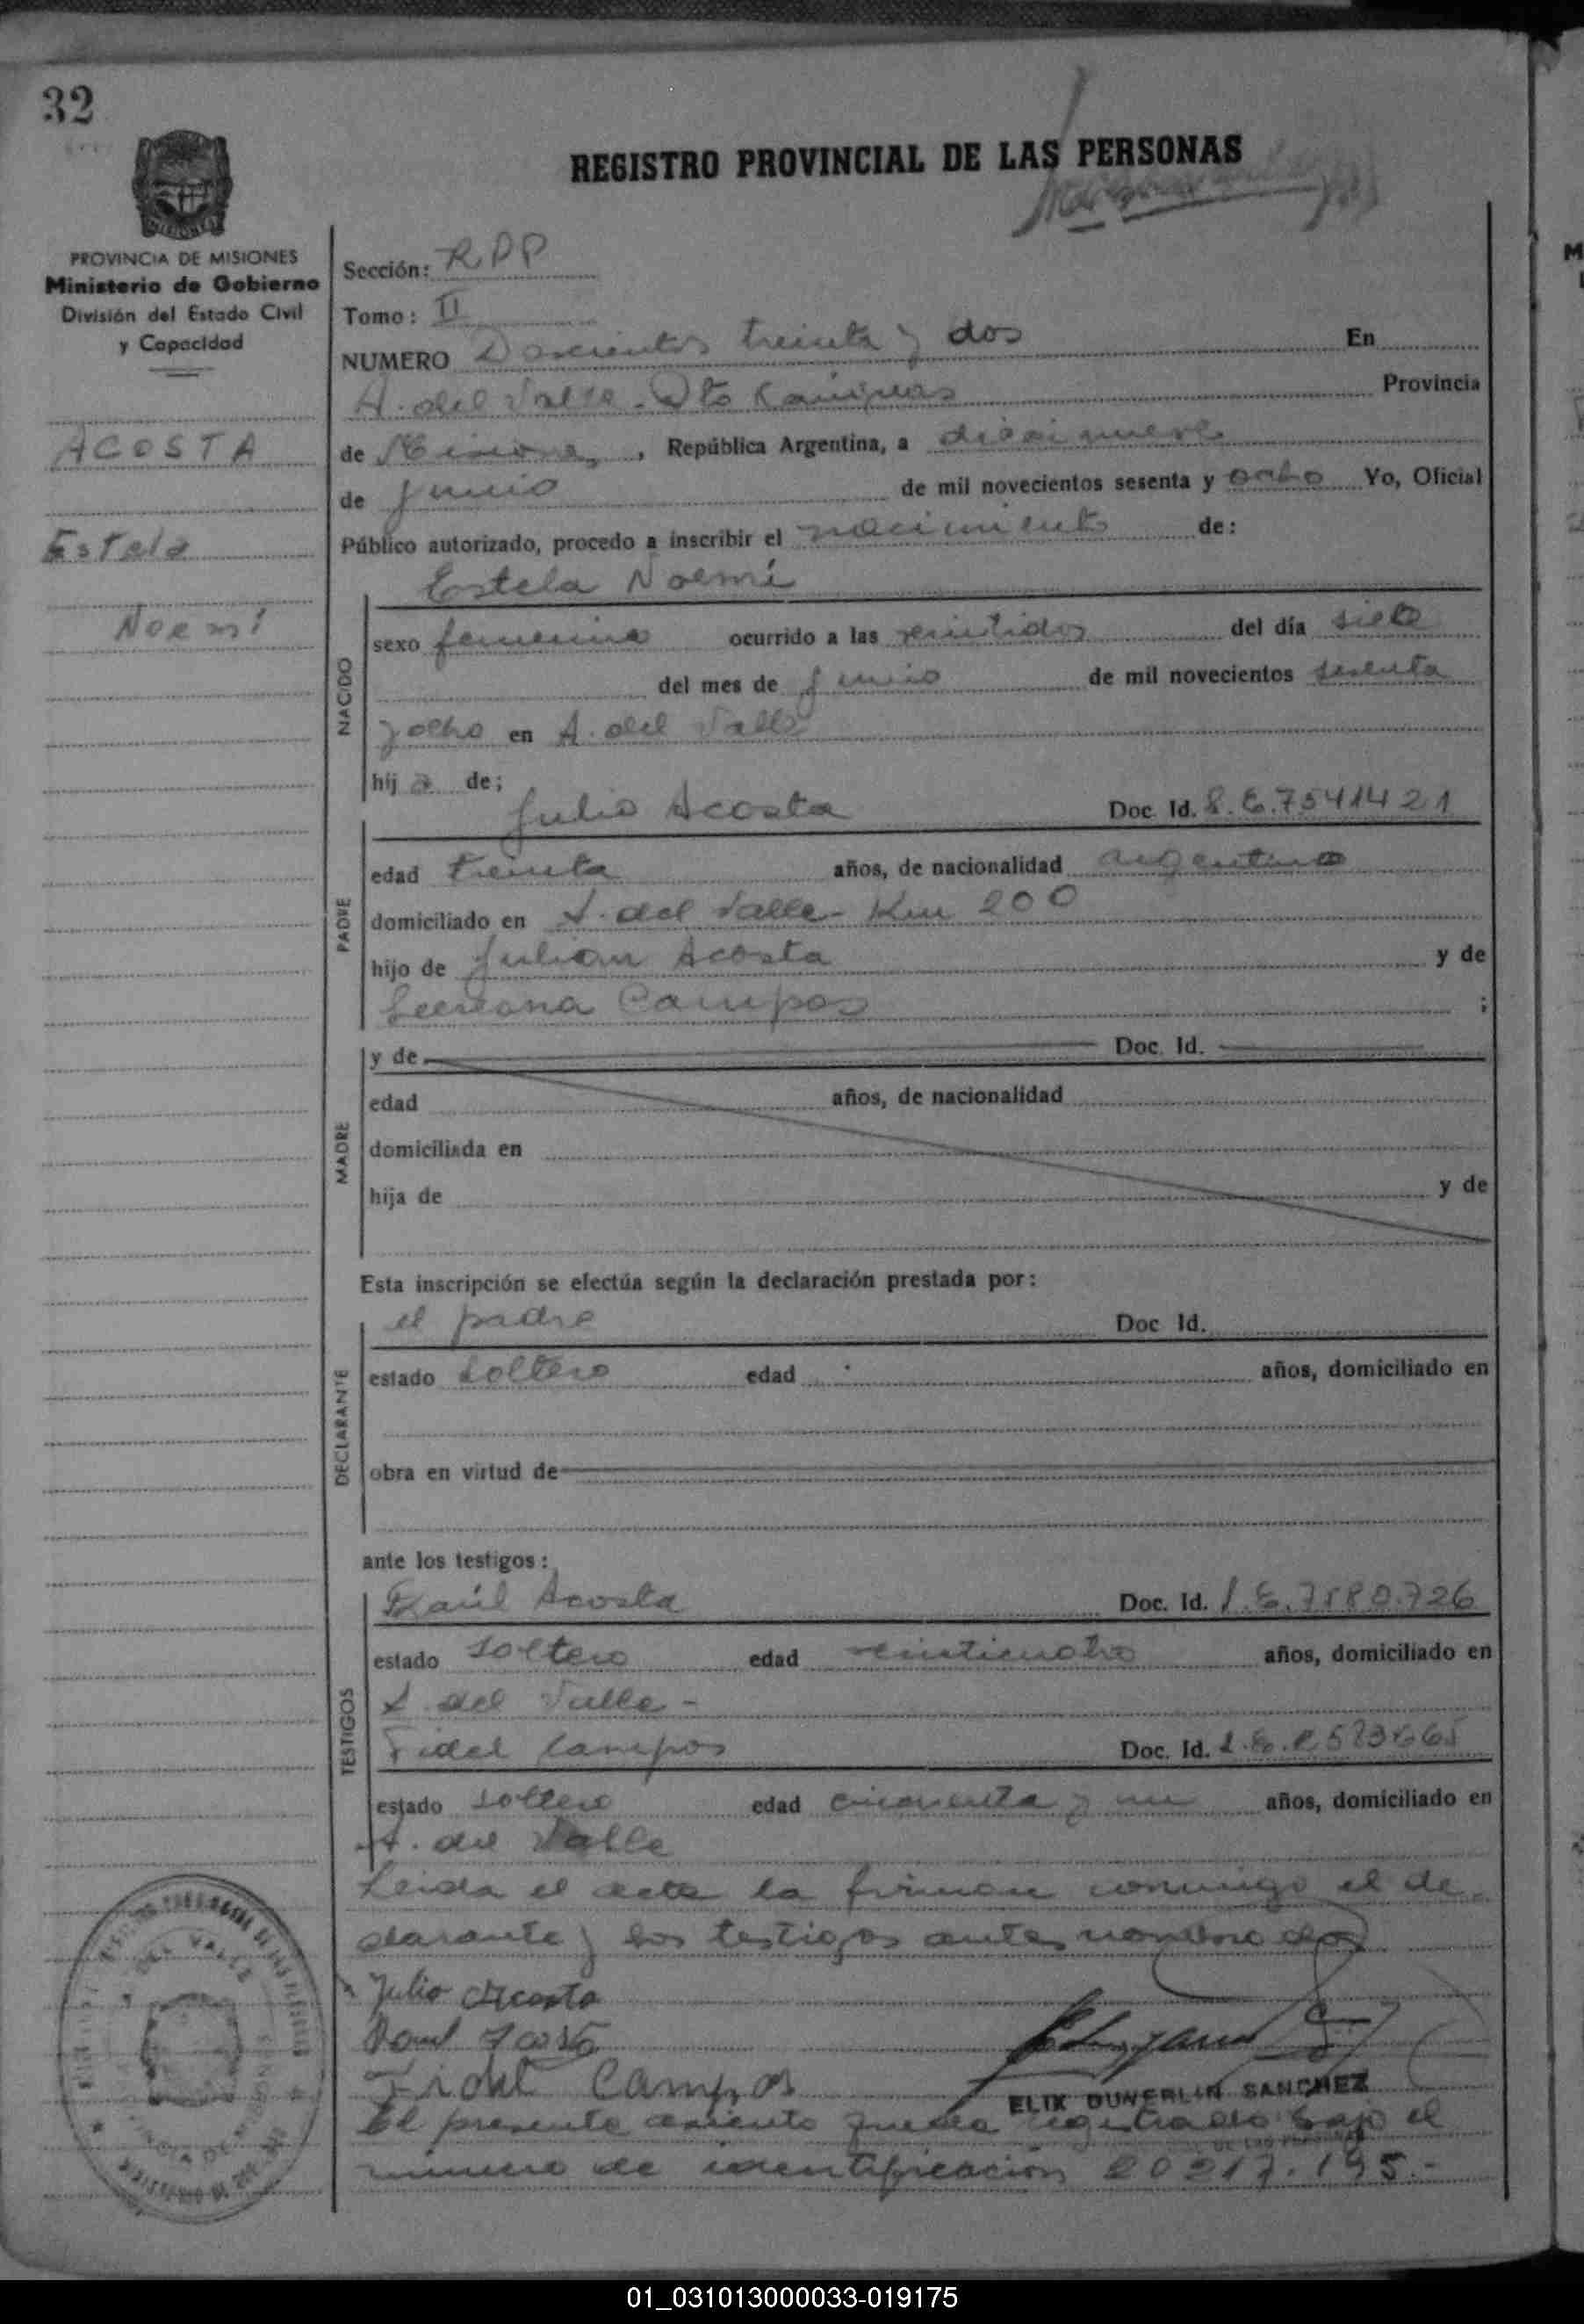 32
REGISTRO PROVINCIAL DE LAS PERSONAS
MISIONES
PROVINCIA DE MISIONES
Ministerio de Gobierno
División del Estado Civil
y Capacidad
ACOSTA
Estela
Noemí
Sección: RPP
Tomo: II
NUMERO Doscientos treinta y dos En
A. del Valle - Dto Cainguas Provincia
de Misiones, República Argentina, a diecinueve
de Junio de mil novecientos sesenta y ocho Yo, Oficial
Público autorizado, procedo a inscribir el nacimiento de:
NACIDO
Estela Noemí
sexo femenino ocurrido a las veintidos del día siete
del mes de Junio de mil novecientos sesenta
y ocho en A. del Valle
hij a de;
PADRE
Julio Acosta Doc. Id. 7541421
edad treinta años, de nacionalidad argentino
domiciliado en A. del Valle - Km 200
hijo de Julian Acosta y de
Campos ;
MADRE
y de Doc. Id.
edad años, de nacionalidad
domiciliada en
hija de y de
Esta inscripción se efectúa según la declaración prestada por:
DECLARANTE
el padre Doc Id.
estado soltero edad años, domiciliado en
obra en virtud de
ante los testigos:
TESTIGOS
Raúl Acosta Doc. Id.
estado soltero edad veinticuatro años, domiciliado en
A. del Valle -
Fidel Campos Doc. Id.
estado soltero edad cincuenta y un años, domiciliado en
A. del Valle
Leida el acta la firman conmigo el de
clarante y los testigos antes nombrados
Julio Acosta
Fidel Campos
SANCHEZ
El presente asiento queda registrado bajo el
número de identificación 20217.195.-
01_031013000033-019175